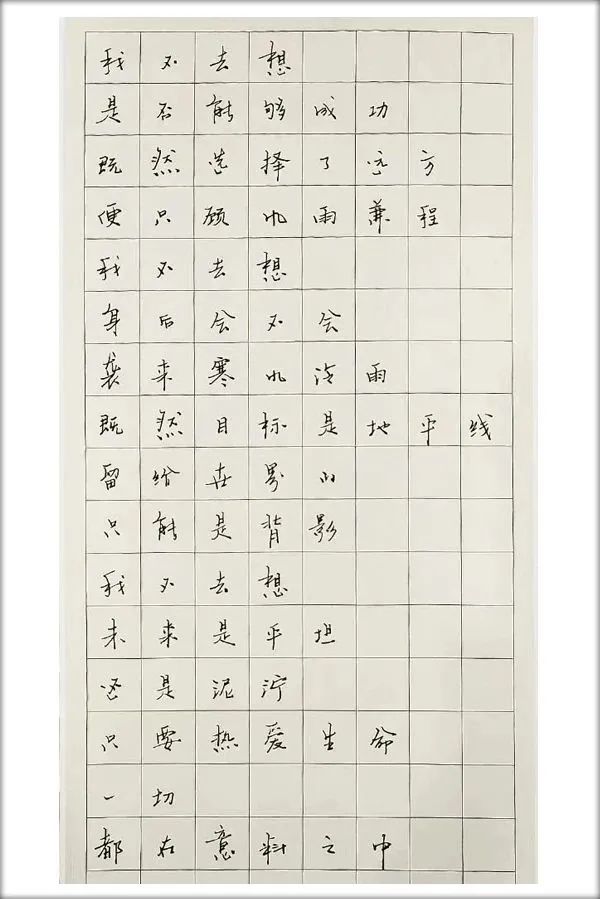 我不去想
是否能够成功
既然选择了远方
便只顾风雨兼程
我不去想
身后会不会
袭来寒风冷雨
既然目标是地平线
留给世界的
只能是背影
我不去想
未来是平坦
还是泥泞
只要热爱生命
一切
都在意料之中